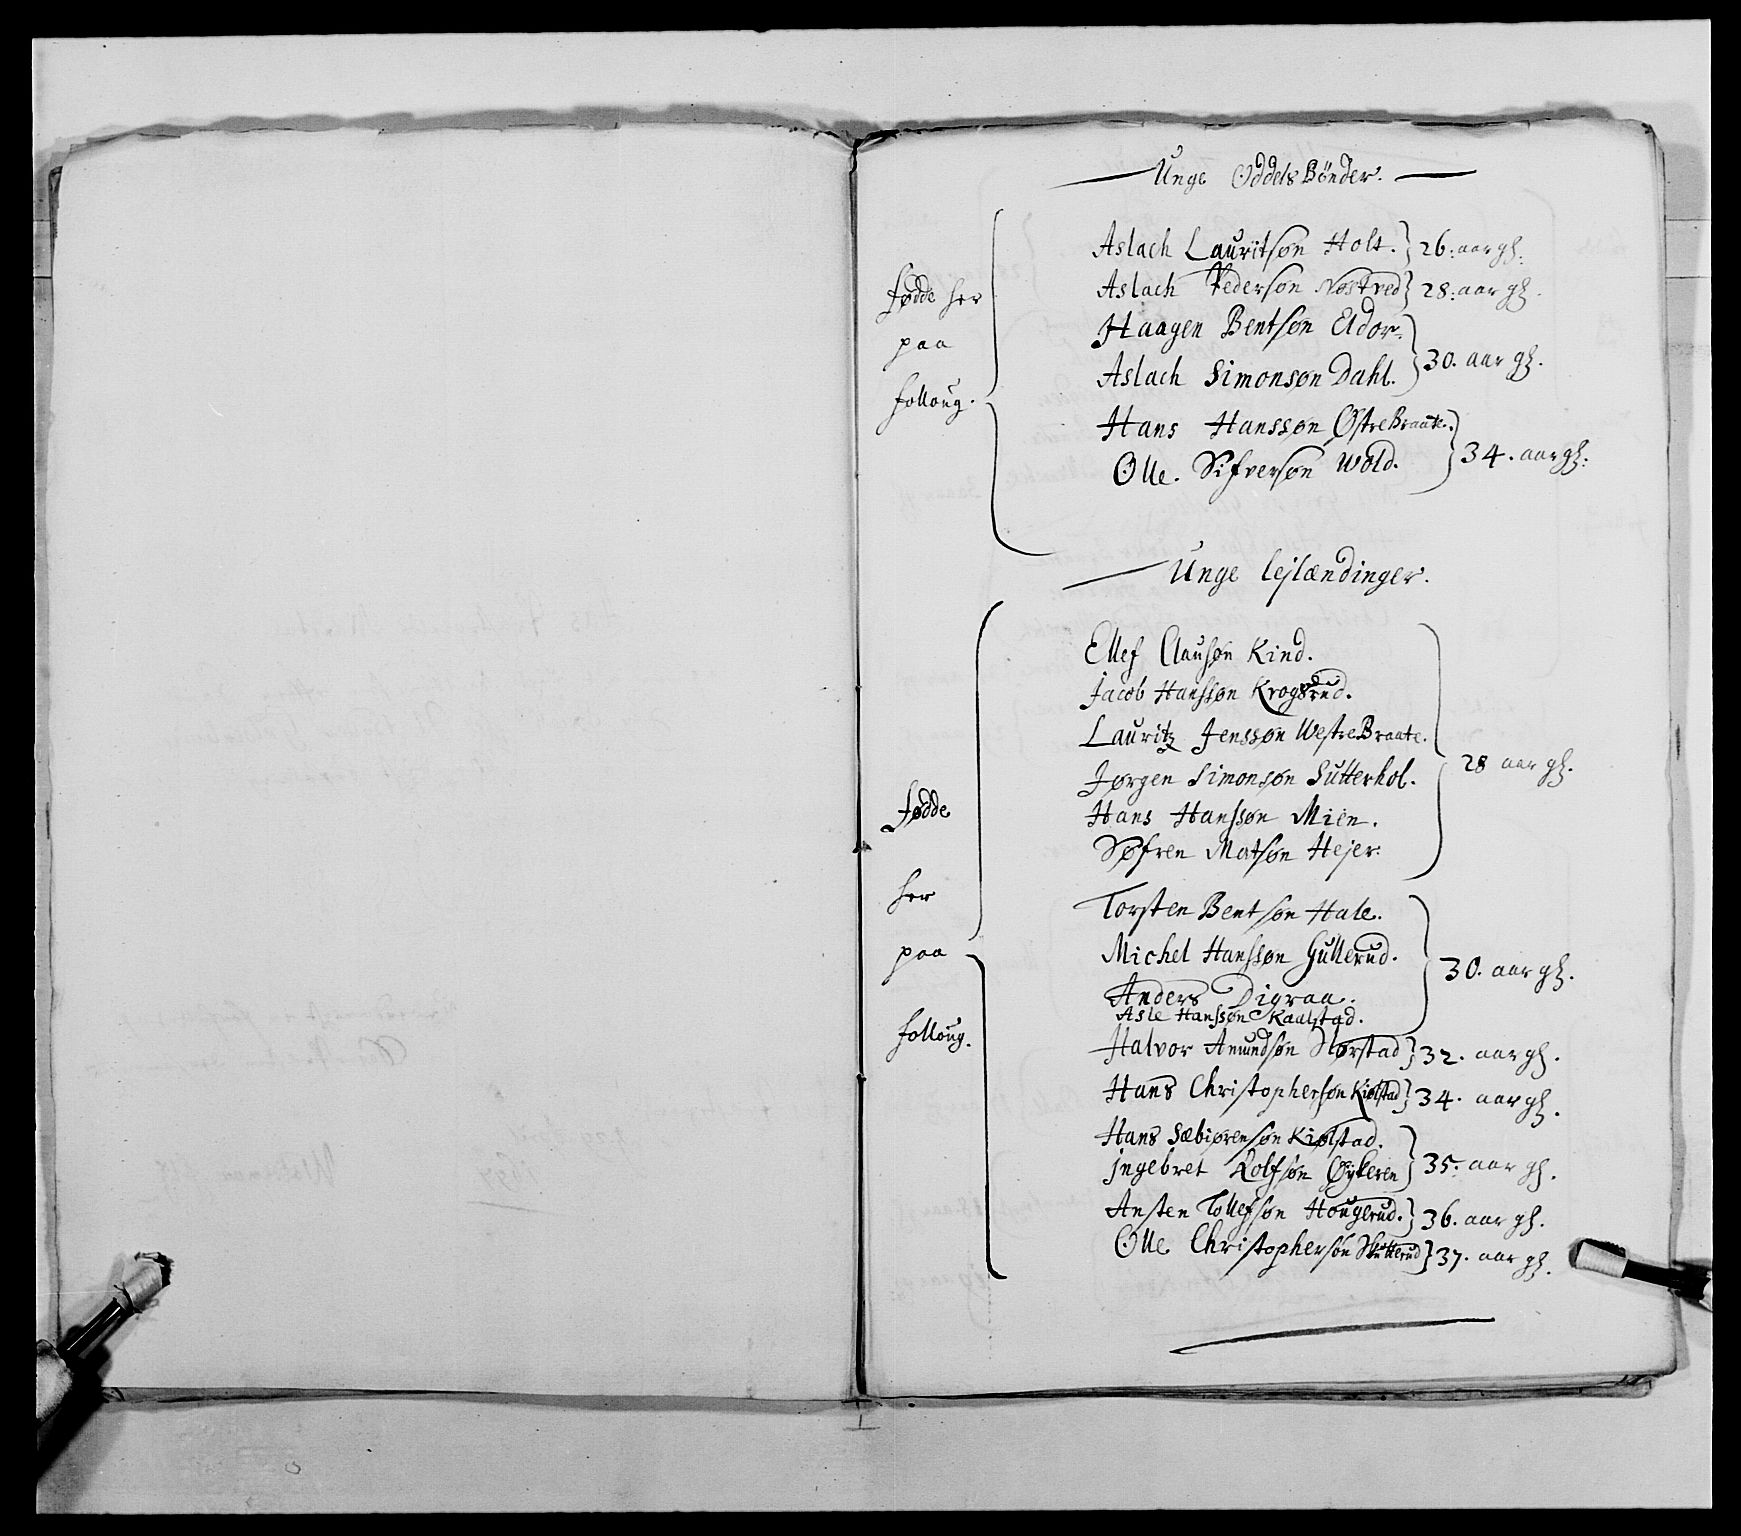 Unge Oddels Bönder.
fødde her
paa
folloug.
Aslach Lauritsøn Holt. } 26: aar gl:
Aslach Pedersøn Nøstved } 28: aar gl.
Haagen Bentsøn Eldor.
Aslach Simonsøn Dahl. } 30. aar gl.
Hans Hanssøn Østre Braate.
Olle. Sifversøn Wold. } 34. aar gl:
Unge lejlændinger.
fødde
her
paa
folloug.
Ellef Clausøn Kind.
Jacob Hanssøn Krogsrud.
Lauritz Jenssøn Westre Braate.
Jørgen Simonsøn Sutterhol.
Hans Hanssøn Mien.
Søfren Matsøn Hejer: } 28 aar gl.
Torsten Bentsøn Hale.
Michel Hanssøn Gullerud.
Anders Digraa.
Asle Hanssøn Kaalstad. } 30. aar gl.
Halvor Amundsøn Norstad } 32. aar gl.
Hans Christophersøn Kiølstad } 34. aar gl.
Hans Sæbiørensøn Kiølstad.
Jngebret Rolfsøn Øykeren } 35. aar gl.
Ansten Tollefsøn Hougerud. } 36. aar gl.
Olle Christophersøn Skutterud } 37. aar gl.